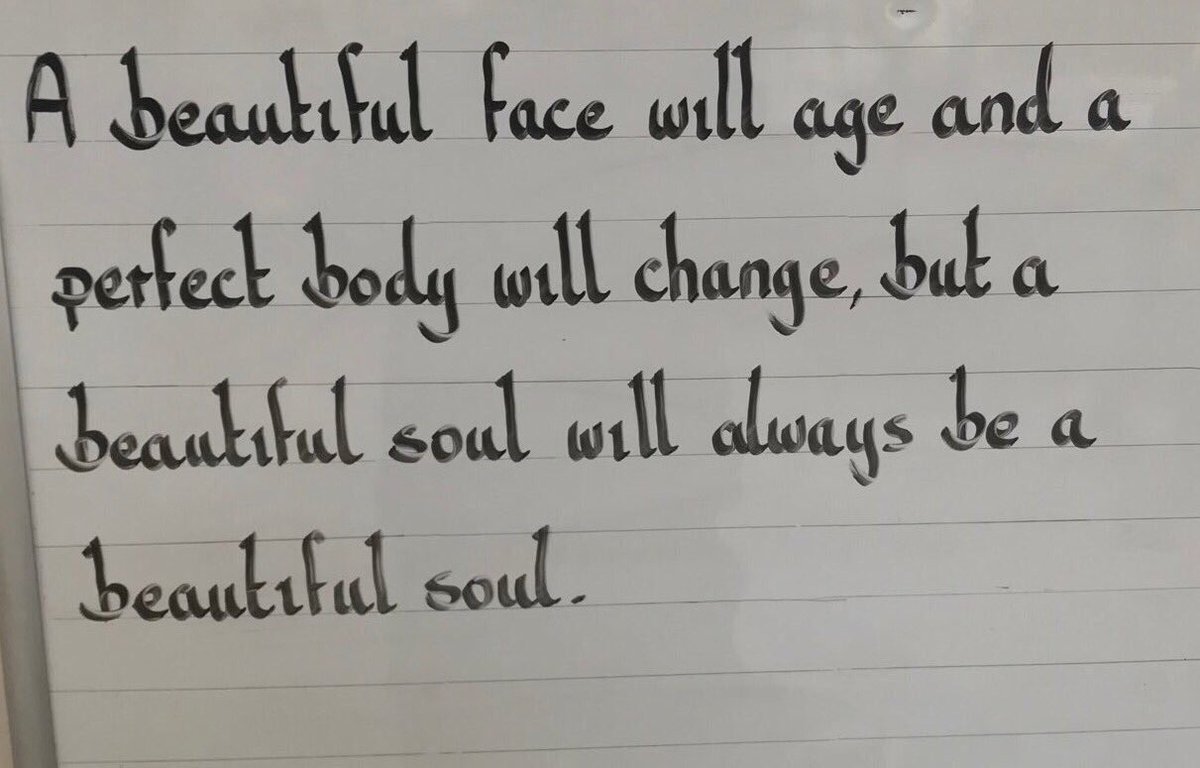 A beautiful face will age and a
perfect body will change, but a
beautiful soul will always be a
beautiful soul.